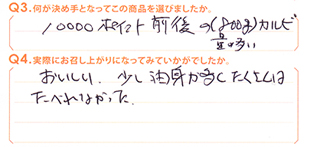 Q3.何が決め手となってこの商品を選びましたか。
10000ポイント前後の(800g)カルビ
量の多い
Q4.実際にお召し上がりになってみていかがでしたか。
おいしい、少し油身が多くたくさんは
たべれなかった